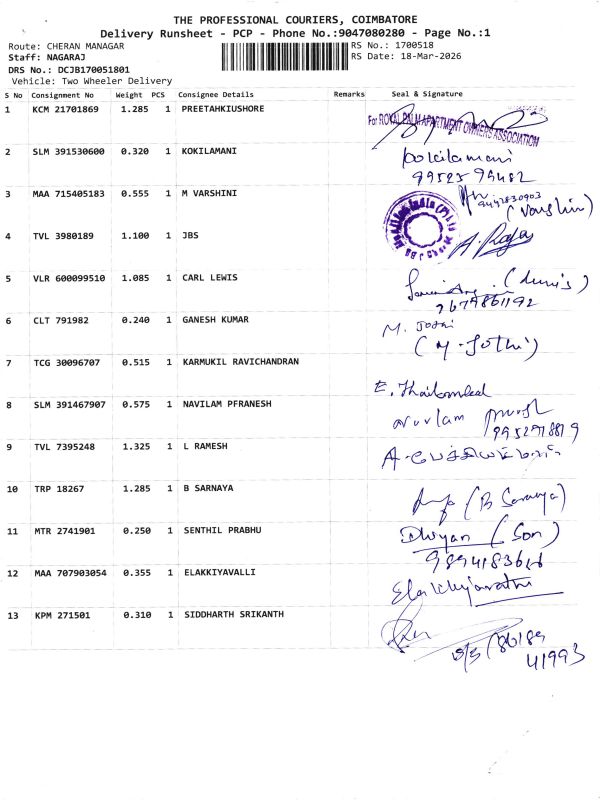 THE PROFESSIONAL COURIERS, COIMBATORE
Delivery Runsheet - PCP - Phone No.:9047080280 - Page No.:1
Route: CHERAN MANAGAR RS No.: 1700518
Staff: NAGARAJ RS Date: 18-Mar-2026
DRS No.: DCJB170051801
Vehicle: Two Wheeler Delivery
S No Consignment No Weight PCS Consignee Details Remarks Seal & Signature
1 KCM 21701869 1.285 1 PREETAHKIUSHORE
For ROYAL PALM APARTMENT OWNERS ASSOCIATION
2 SLM 391530600 0.320 1 KOKILAMANI
kokilamani
3 MAA 715405183 0.555 1 M VARSHINI
(Varshini)
4 TVL 3980189 1.100 1 JBS
A. Raja
5 VLR 600099510 1.085 1 CARL LEWIS
6 CLT 791982 0.240 1 GANESH KUMAR
M. Jothi
(M. Jothi)
7 TCG 30096707 0.515 1 KARMUKIL RAVICHANDRAN
8 SLM 391467907 0.575 1 NAVILAM PFRANESH
9 TVL 7395248 1.325 1 L RAMESH
10 TRP 18267 1.285 1 B SARNAYA
(B Saranya)
11 MTR 2741901 0.250 1 SENTHIL PRABHU
(Son)
12 MAA 707903054 0.355 1 ELAKKIYAVALLI
13 KPM 271501 0.310 1 SIDDHARTH SRIKANTH
86189
41993